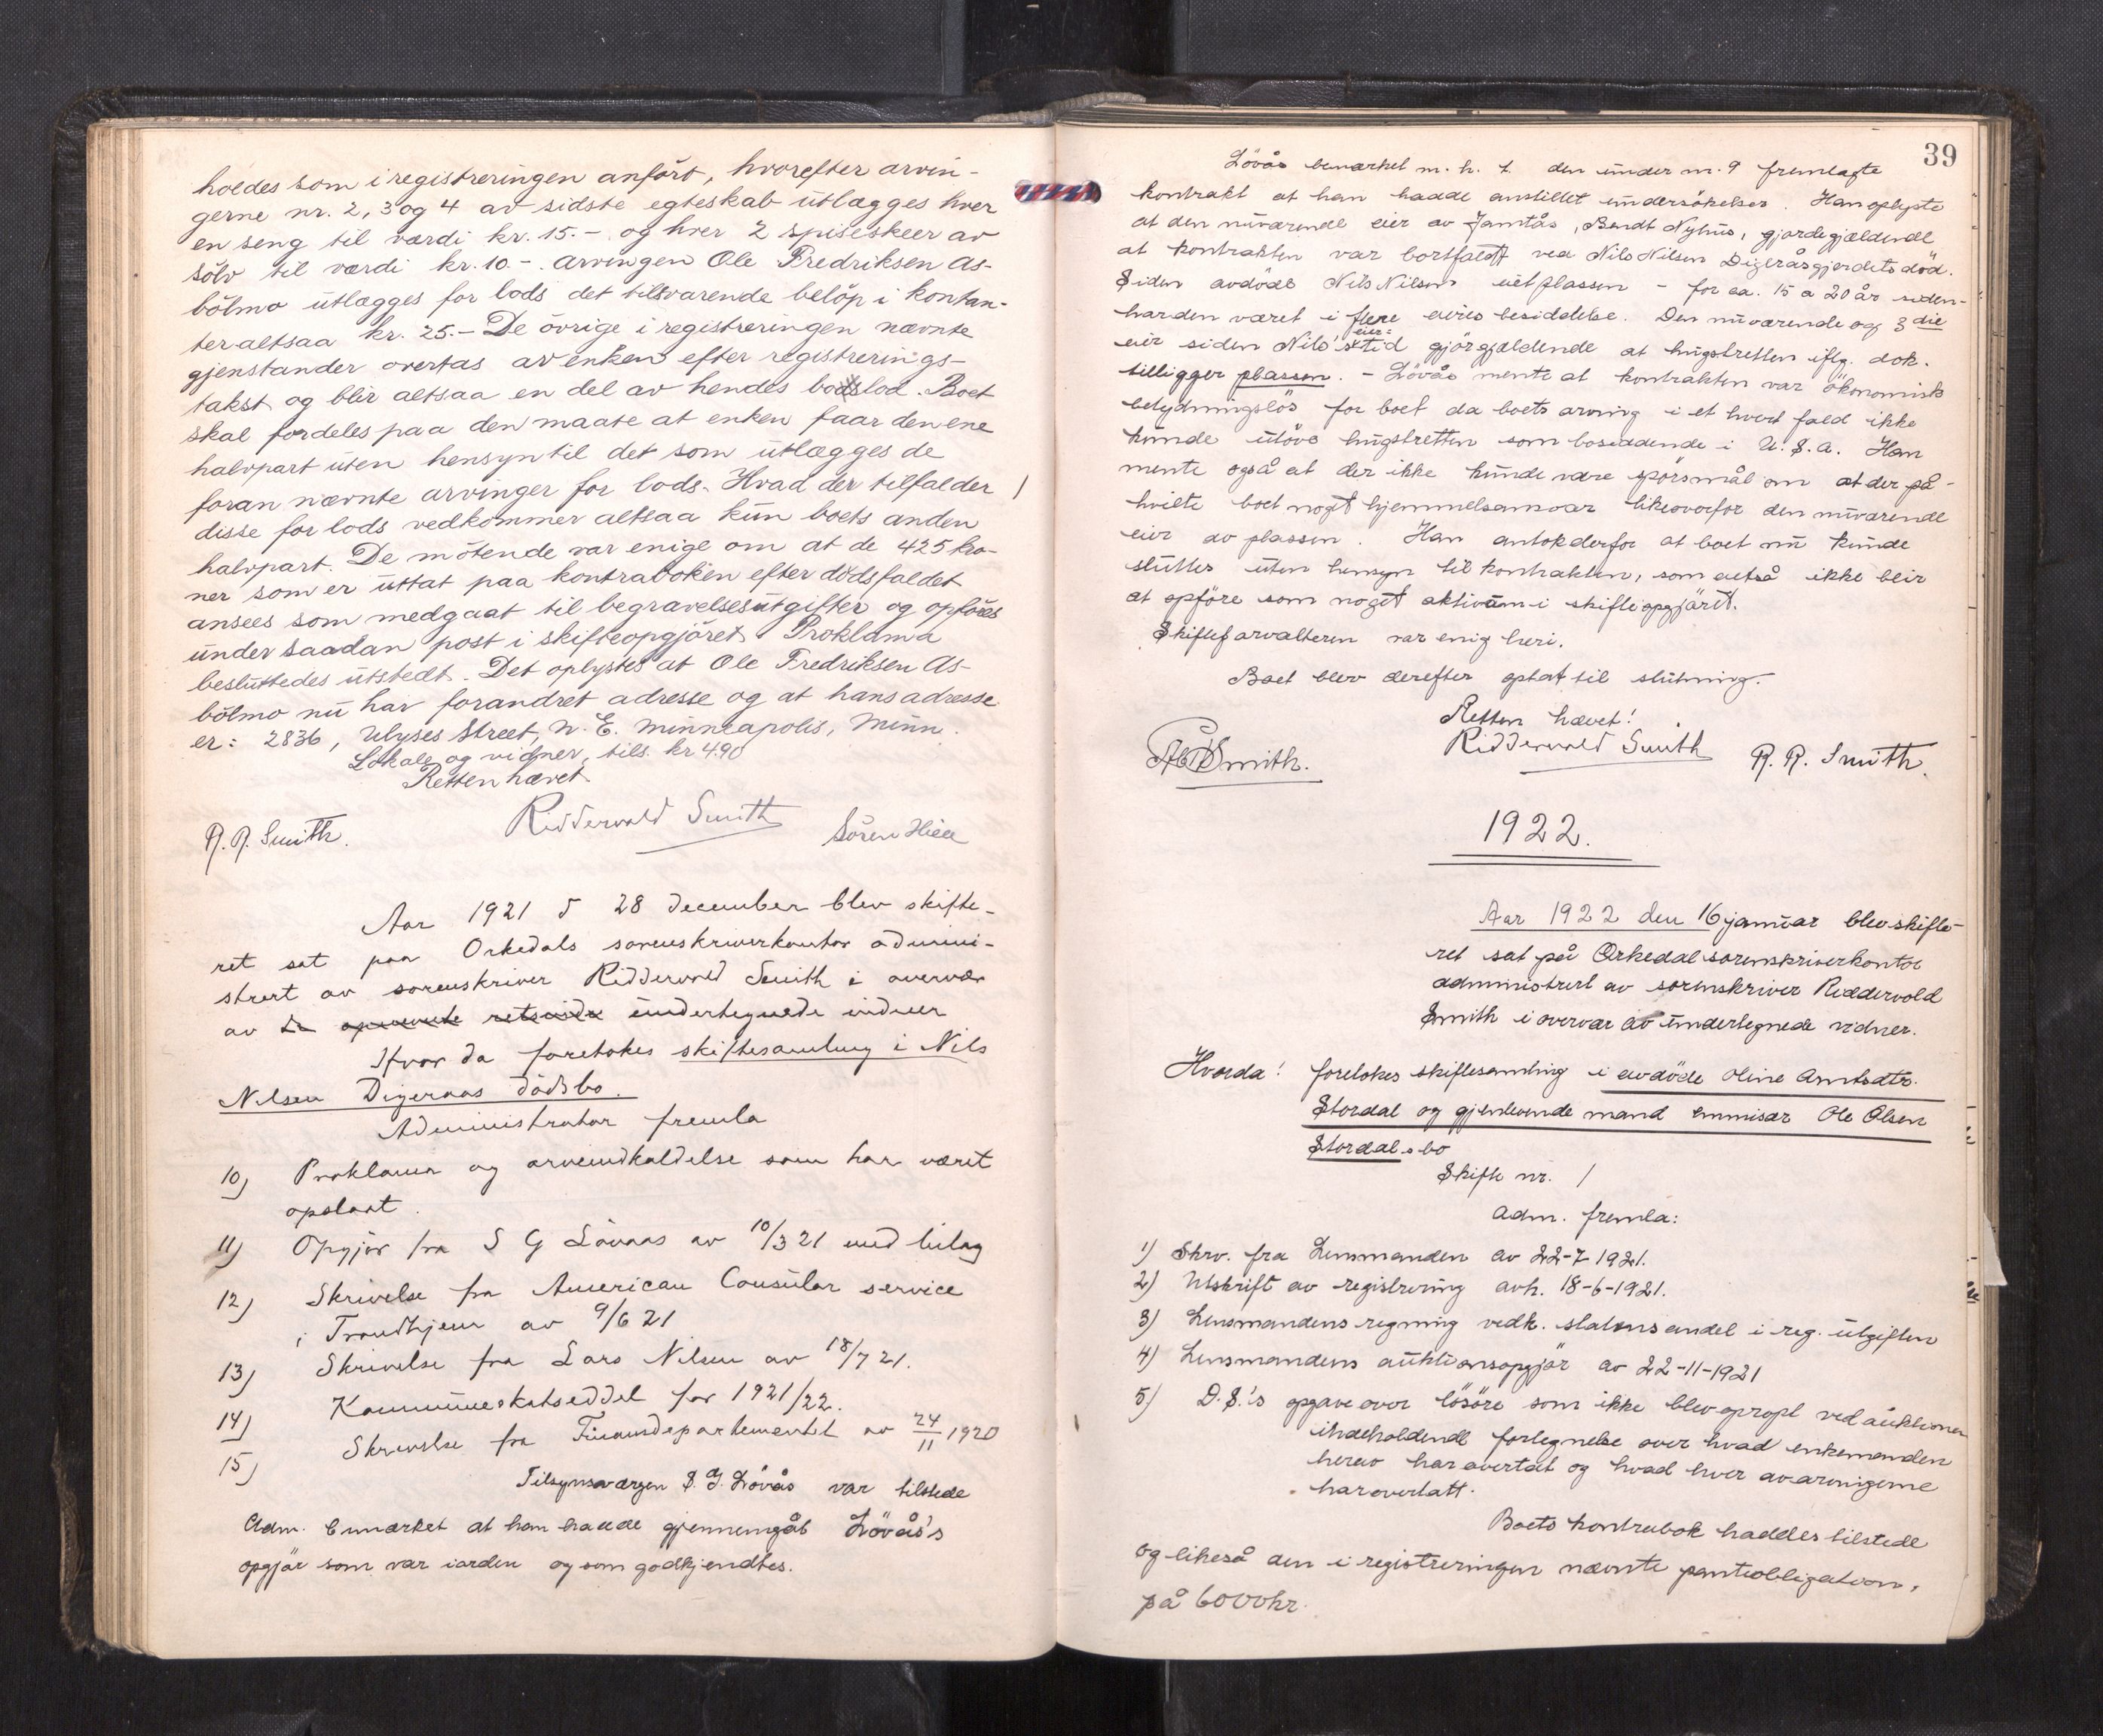 holdes som i registreringen anført, hvorefter arvin-
gerne nr. 2, 3 og 4 av sidste egteskab utlægges hver
en seng til værdi kr. 15.- og hver 2 spiseskeer av
sölv til værdi kr. 10.-. Arvingen Ole Fredriksen As-
bölmo utlægges for lods det tilsvarende belöp i kontan-
ter altsaa kr. 25.- De övrige i registreringen nævnte
gjenstander overtas av enken efter registrerings-
takst og blir altsaa en del av hendes bodslod. Boet
skal fordeles paa den maate at enken faar den ene
halvpart uten hensyn til det som utlægges de
foran nævnte arvinger for lods. Hvad der tilfalder
disse for lods vedkommer altsaa kun boets anden
halvpart. De mötende var enige om at de 425 kro-
ner som er uttat paa kontraboken efter dödsfaldet
ansees som medgaat til begravelsesutgifter og opföres
under saadan post i skifteopgjöret. Proklama
besluttedes utstedt. Det oplystes at Ole Fredriksen As-
bölmo nu har forandret adresse og at hans adresse
er: 2836, Ulyses Street, N. E. Minneapolis, Minn.
Lokale og vidner, tils. kr 4.90
Retten hævet
R. R. Smith. Riddervold Smith Sören Hiee
Aar 1921 d 28 december blev skifte-
ret sat paa Orkedals sorenskriverkontor admini-
strert av sorenskriver Riddervold Smith i overvær
av de opnevnte retsvidner undertegnede vidner
Hvor da foretokes skiftesamling i Nils
Nilsen Digeraas dödsbo.
Administrator fremla
10) Proklama og arveindkaldelse som har været
opslaat.
11) Opgjör fra S G Lövaas av 10/3 21 med bilag
12) Skrivelse fra American Consular service
i Trondhjem av 9/6 21
13) Skrivelse fra Lars Nilsen av 18/7 21.
14) Kommuneskatseddel for 1921/22.
15) Skrivelse fra Finansdepartementet av 24/11 1920
Tilsynsværgen S. G. Lövås var tilstede
Adm. bemærket at han hadde gjennemgåt Lövås's
opgjör som var iorden og som godkjendtes.
39
Lövås bemærket m. h. t. den under nr. 9 fremlagte
kontrakt at han hadde anstillet undersökelser. Han oplyste
at den nuværende eier av Jamtås, Bendt Nyhus, gjorde gjældende
at kontrakten var bortfaldt ved Nils Nilsen Digeråsgjerdets död.
Siden avdöde Nils Nilsen eiet plassen - for ca. 15 a 20 år siden -
har den været i flere eieres besiddelse. Den nuværende og 3die
eier siden Nils's eier=tid gjör gjældende at hugstretten iflg. dok.
tilligger plassen. - Lövås mente at kontrakten var ökonomisk
betydningslös for boet da boets arving i et hvert fald ikke
kunde utöve hugstretten som boseddende i U. S. A. Han
mente også at der ikke kunde være spörsmål om at der på-
hvilte boet noget hjemmelsansvar likeoverfor den nuværende
eier av plassen. Han antok derfor at boet nu kunde
sluttes uten hensyn til kontrakten, som altså ikke blir
at opföre som noget aktivum i skifteopgjöret.
Skifteforvalteren var enig heri.
Boet blev derefter optat til slutning.
Retten hævet!
Smith. Riddervold Smith R. R. Smith.
1922.
Aar 1922 den 16 januar blev skifte-
ret sat på Orkedal sorenskriverkontor
administrert av sorenskriver Riddervold
Smith i overvær av undertegnede vidner.
Hvorda: foretokes skiftesamling i avdöde Oline Arntsdtr.
Stordal og gjenlevende mand emmisær Ole Olsen
Stordals bo
Skifte nr. 1
Adm. fremla:
1) Skrv. fra Lensmanden av 22-7-1921.
2) Utskrift av registrering avh. 18-6-1921.
3) Lensmandens regning vedk. statens andel i reg. utgiften
4) Lensmandens auktionsopgjör av 22-11-1921
5) D.S.'s opgave over lösöre som ikke blev opropt ved auktionen
indeholdende fortegnelse over hvad enkemanden
herav har overtat og hvad hver av arvingerne
har overtatt.
Boets kontrabok haddes tilstede
og likeså den i registreringen nævnte panteobligation,
på 6000 kr.